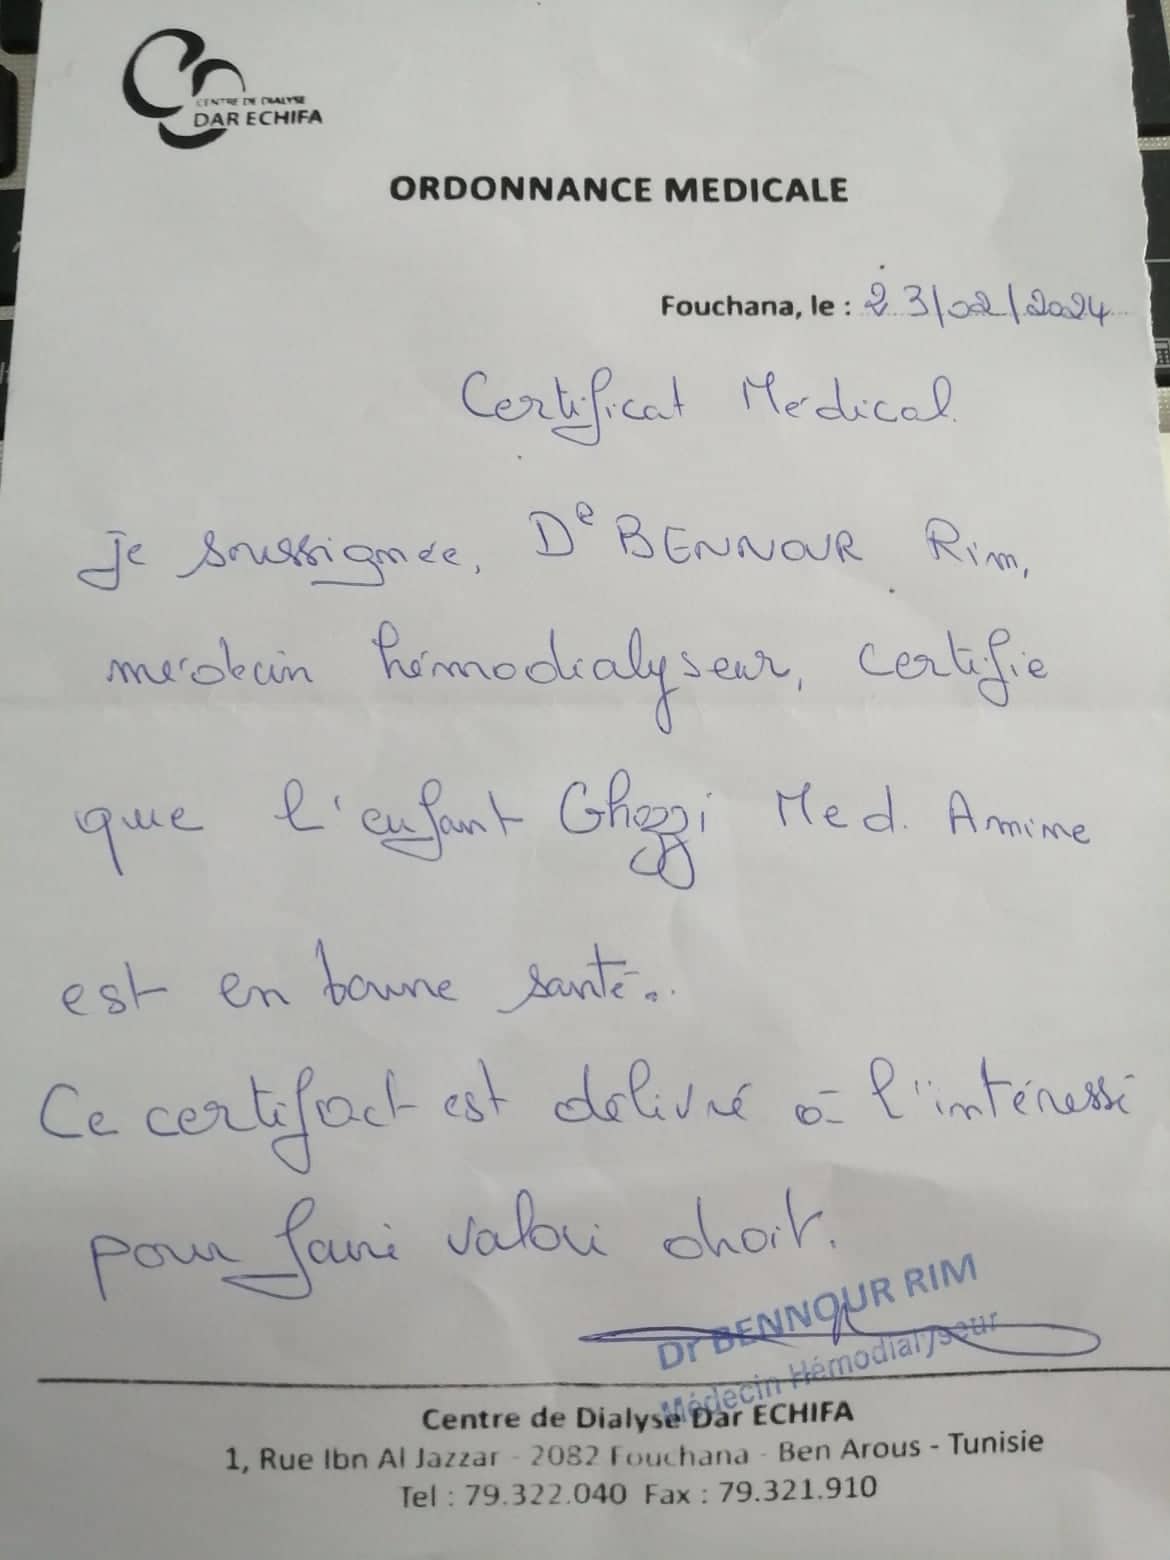 CENTRE DE DIALYSE
DAR ECHIFA
ORDONNANCE MEDICALE
Fouchana, le : 23/02/2024
Certificat Médical
Je soussignée, Dr BENNOUR Rim,
médecin hémodialyseur, certifie
que l'enfant Ghozzi Med. Amine
est en bonne santé.
Ce certifact est délivré à l'intéressé
pour faire valoir droit.
Dr BENNOUR RIM
Médecin Hémodialyseur
Centre de Dialyse Dar ECHIFA
1, Rue Ibn Al Jazzar - 2082 Fouchana - Ben Arous - Tunisie
Tel : 79.322.040 Fax : 79.321.910